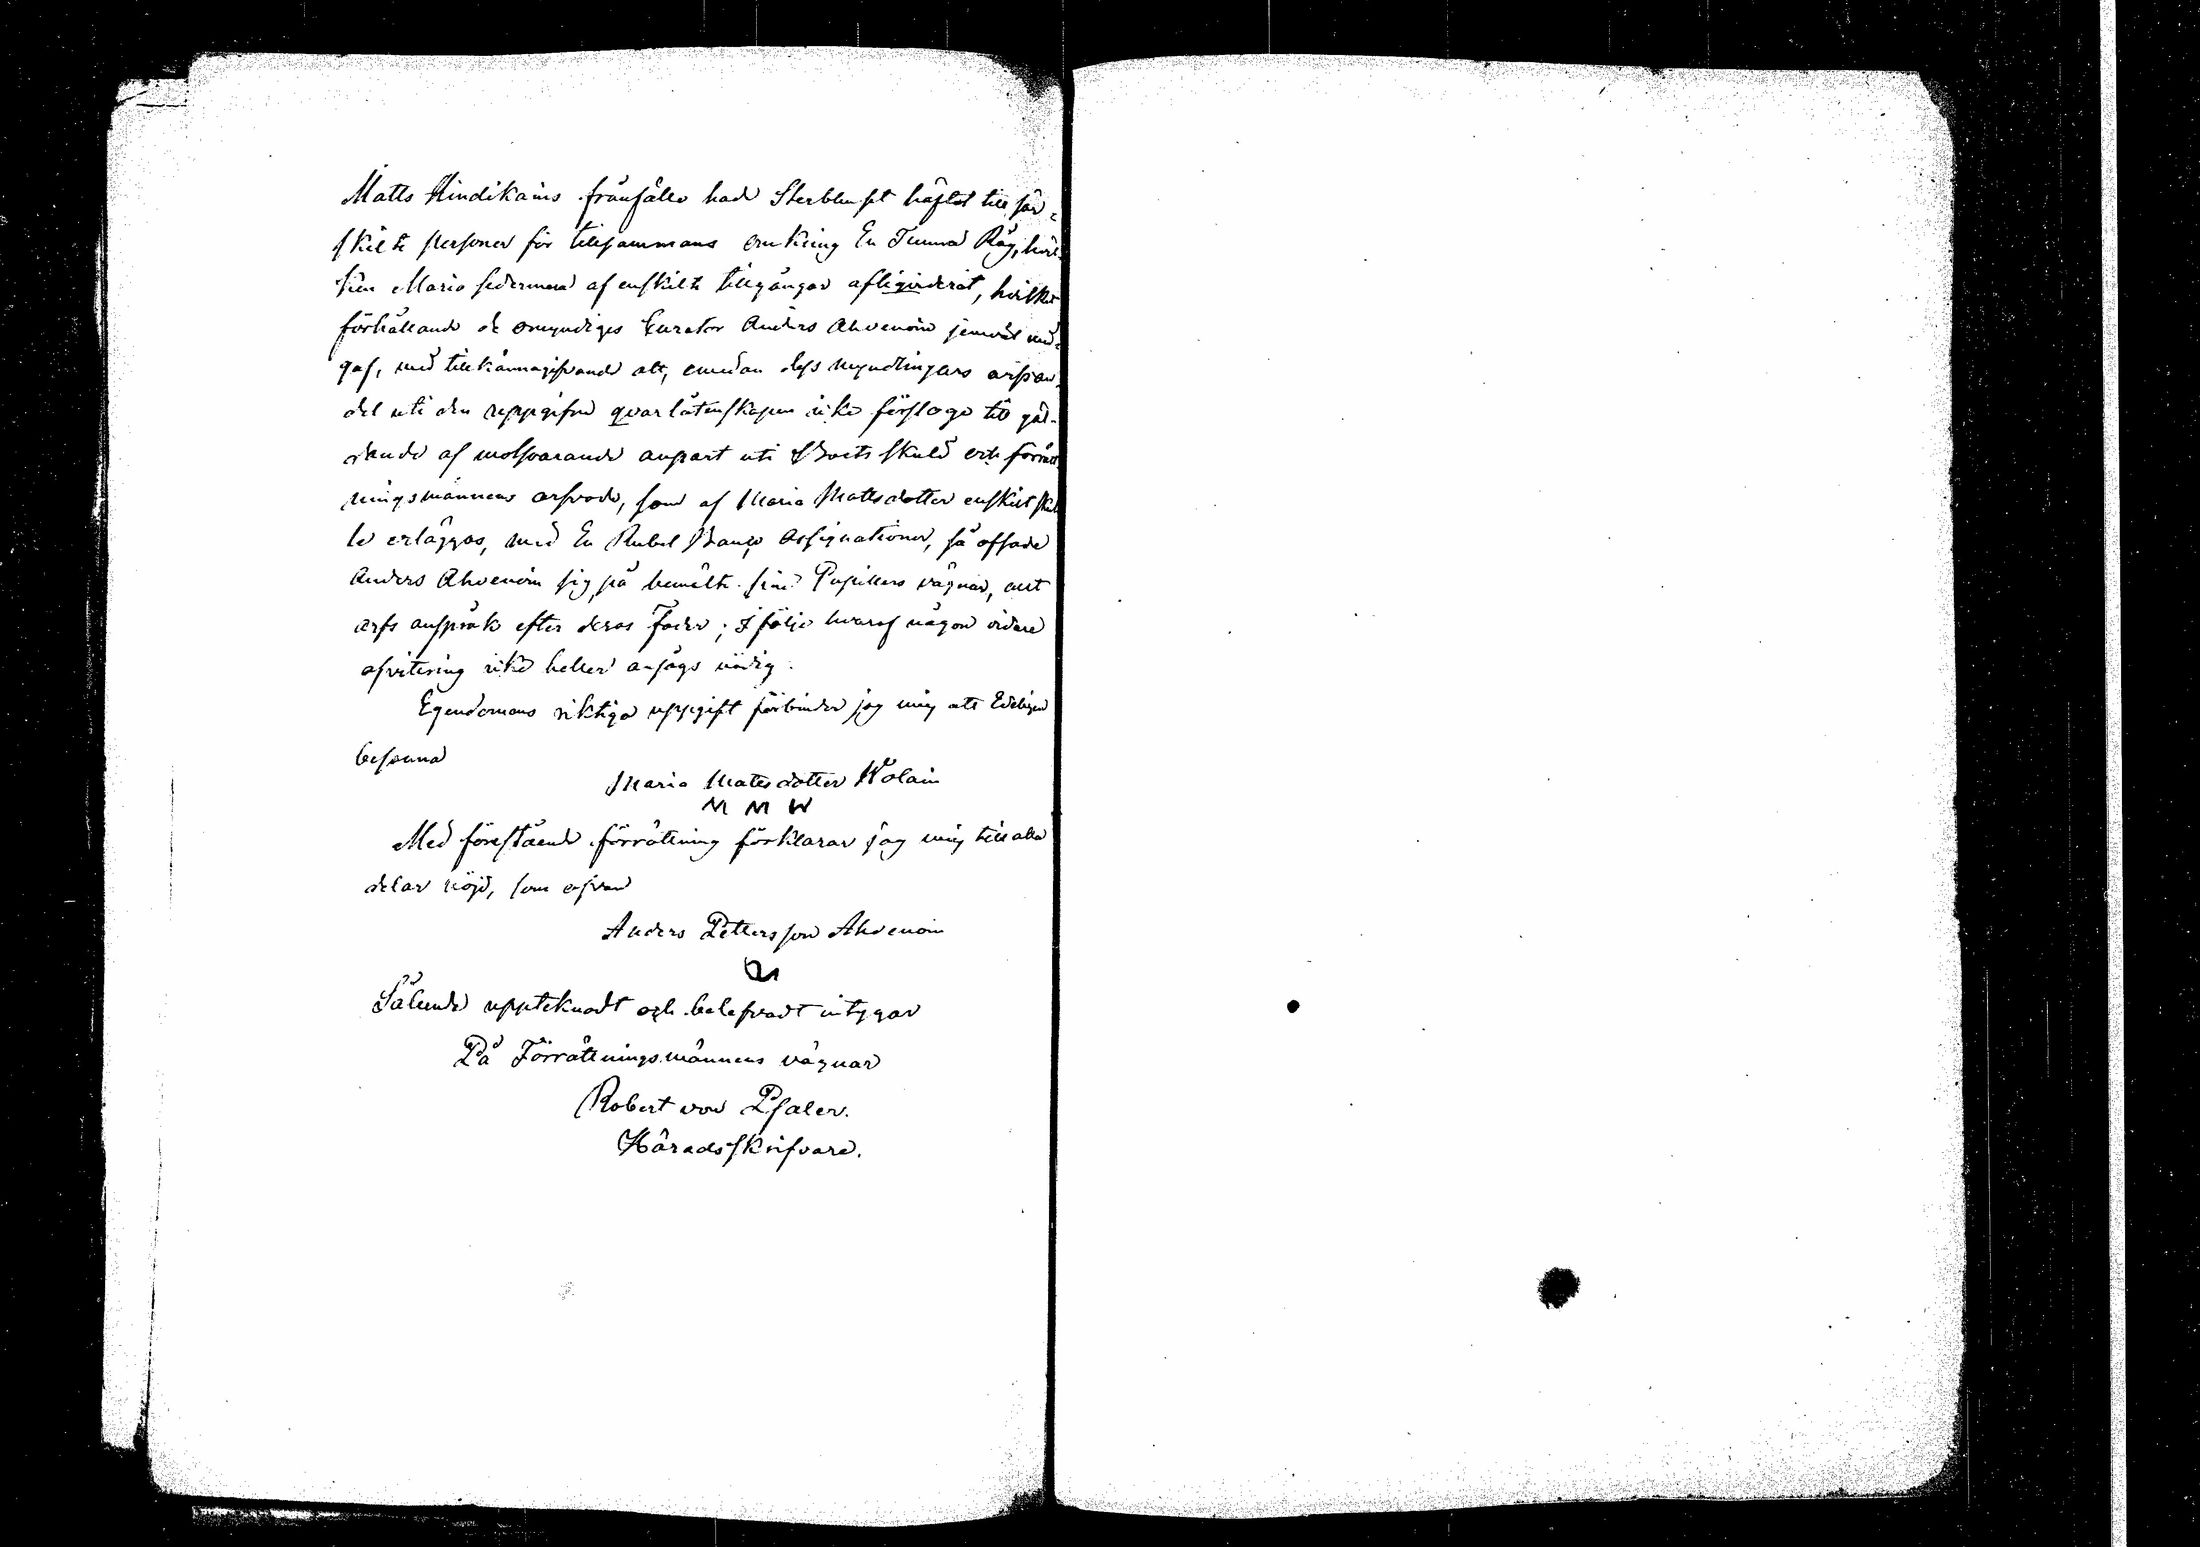 Matts Hindikains frånfälle hade Sterbhuset häftat till sär-
skilte personer för tillsammans omkring En Tunna Råg, hvil-
ken Maria sedermera af enskilte tillgångar afliqviderat, hvilket
förhållande de omyndiges Curator Anders Ahvenain jemväl med-
gaf, med tillkännagifvande att, emedan dess Myndlingars arfsan-
del uti den uppgifne qvarlåtenskapen icke försloge till gäl-
dande af motsvarande anpart uti Boets skuld och förrätt-
ningsmännens arfvode, som af Maria Mattsdotter enskilt skul-
le erläggas, med En Rubel Banco Assignationer, så afsade
Anders Ahvenain sig, på bemälte sine Pupillers vägnar, allt
arfs anspråk efter deras Fader; I följe hvaraf någon vidare
afvitering icke heller ansågs nödig.
Egendomens riktiga uppgift förbinder jag mig att Edeligen
besanna
Maria Mattsdotter Wolain
M M W
Med förestående förrättning förklarar jag mig till alla
delar nöjd, som ofvan
Anders Pettersson Ahvenain
Sålunda uppteknadt och belefvadt intygar
På Förrättningsmännens vägnar
Robert von Pfaler.
Häradsskrifvare.